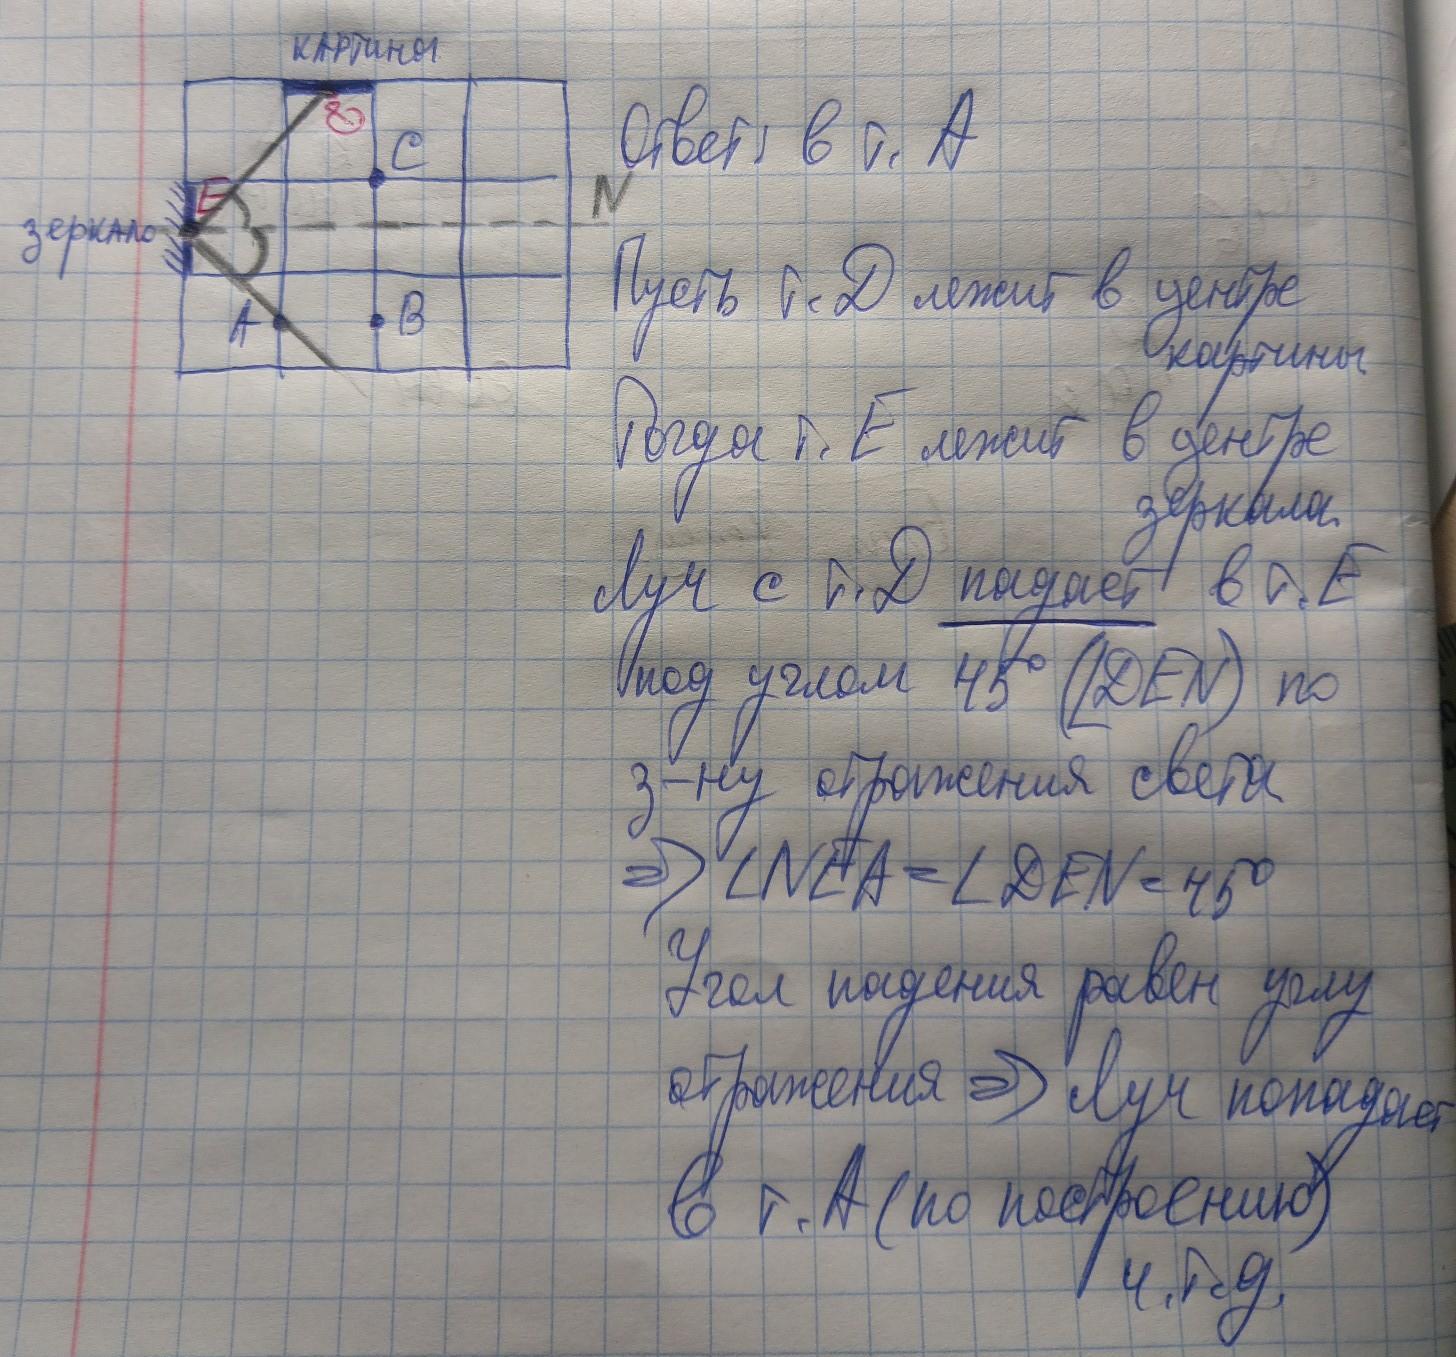 картины
D
C
E
N
зеркало
A
B
Ответ: в т. А
Пусть т. D лежит в центре
картины
Тогда т. E лежит в центре
зеркала.
Луч с т. D падает в т. E
под углом 45° (∠DEN) по
з-ну отражения света
=> ∠NEA = ∠DEN = 45°
Угол падения равен углу
отражения => Луч попадает
в т. А (по построению)
ч.т.д.